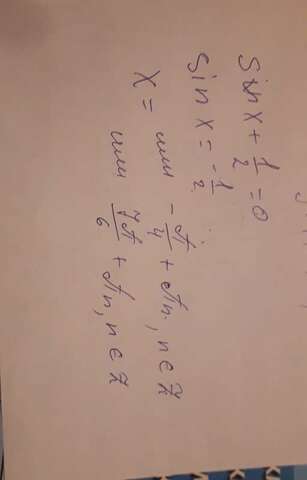 sin x + 1/2 = 0
sin x = -1/2
x = или -π/4 + πn, n ∈ Z
или 7π/6 + πn, n ∈ Z